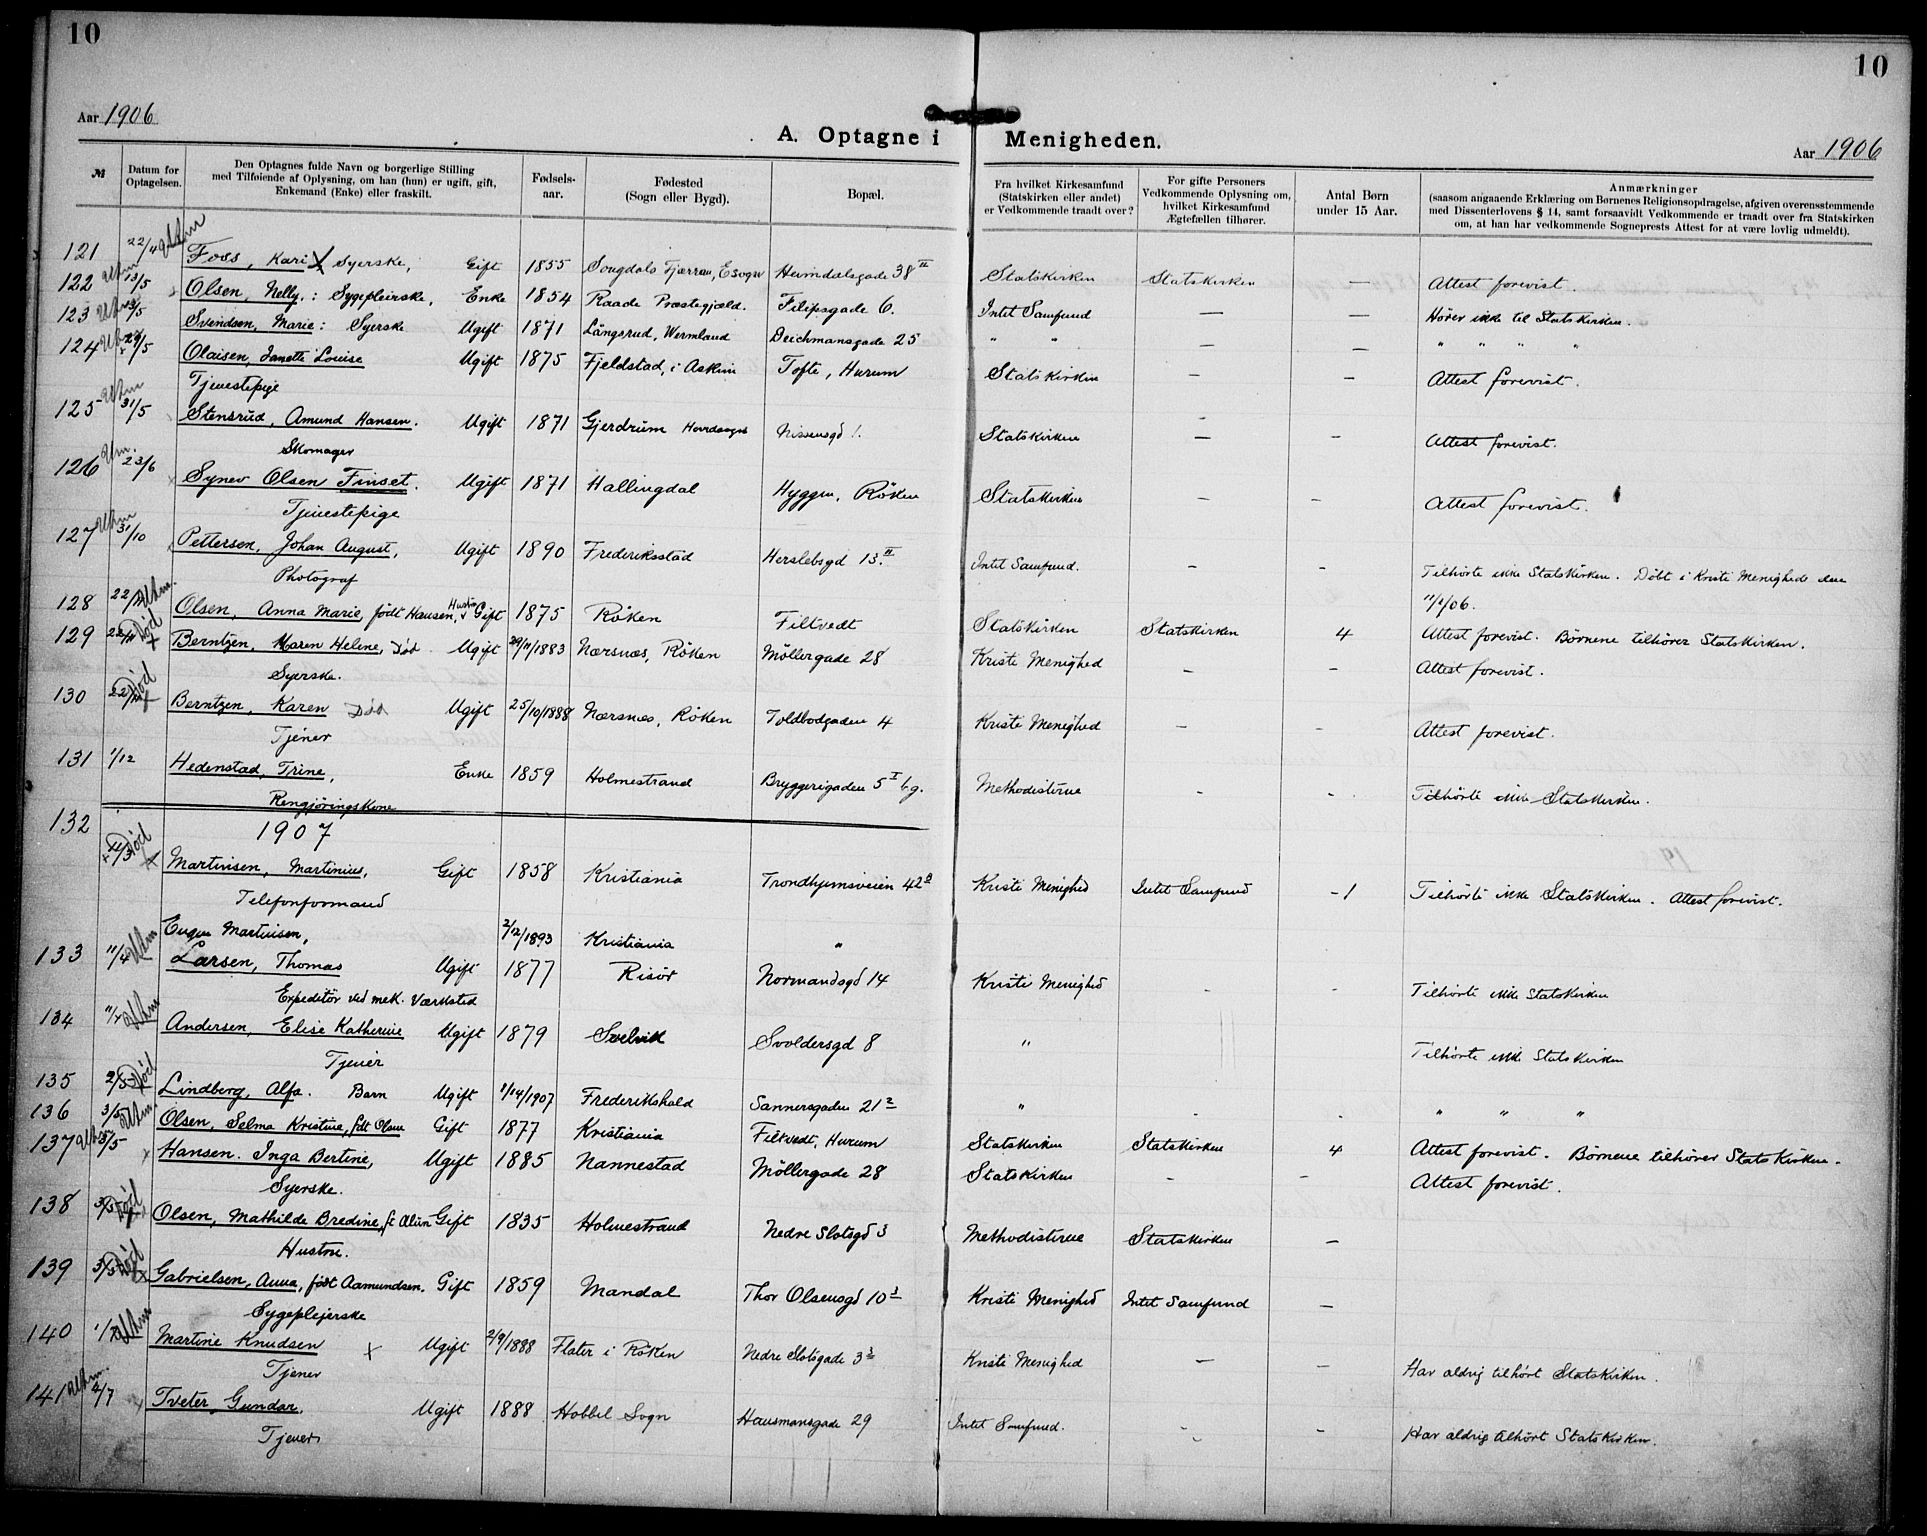 10
10
Aar 1906
Aar 1906
A. Optagne i Menigheden.
№
Datum for Optagelsen.
Den Optagnes fulde Navn og borgerlige Stilling
med Tilføiende af Oplysning, om han (hun) er ugift, gift,
Enkemand (Enke) eller fraskilt.
Fødsels-
aar.
Fødested
(Sogn eller Bygd).
Bopæl.
Fra hvilket Kirkesamfund
(Statskirken eller andet)
er Vedkommende traadt over?
For gifte Personers
Vedkommende Oplysning om,
hvilket Kirkesamfund
Ægtefællen tilhører.
Antal Børn
under 15 Aar.
Anmærkninger
(saasom angaaende Erklæring om Børnenes Religionsopdragelse, afgiven overensstemmende
med Dissenterlovens § 14, samt forsaavidt Vedkommende er traadt over fra Statskirken
om, at han har vedkommende Sogneprests Attest for at være lovlig udmeldt).
121 22/4 Uhm Foss, Kari X Syerske, Gift 1855 Sougdals Fjærran, E sogn Heimdalsgade 38 II Statskirken Statskirken — Attest forevist.
122 Uhm 13/5 Olsen, Nelly,: Sygepleirske, Enke 1854 Raade Præstegjæld. Filipsgade 6. Intet Samfund — — Hører ikke til Statskirken.
123 Uhm /5 Svendsen, Marie: Syerske Ugift 1871 Långsrud, Wermland Deichmansgade 25 " " — — " " " "
124 Uhm 29/5 Olaisen, Janette Louise Ugift 1875 Fjeldstad, i Askim Tofte, Hurum Statskirken — — Attest forevist.
Tjenestepige
125 Uhm 31/5 Stensrud, Amund Hansen. Ugift 1871 Gjerdrum Hovdsogn Nissensgd 1. Statskirken — — Attest forevist.
Skomager
126 Uhm. 23/6 Synev Olsen Finset. Ugift 1871 Hallingdal Hyggen, Röken Statskirken — — Attest forevist.
Tjenestepige
127 Uhm 31/10 Pettersen, Johan August, Ugift 1890 Frederiksstad Herslebsgd 13. II Intet Samfund. — — Tilhörte ikke Statskirken. Döbt i Kristi Menighed den
Photograf 11/2/06.
128 22/ Uhm. Olsen, Anna Marie, födt Hansen, Hustru Gift 1875 Röken Filtvedt Statskirken Statskirken 4 Attest forevist. Börnene tilhörer Statskirken.
129 22/11 Död Berntzen, Maren Helene, Död Ugift 29/11/1883 Nærsnæs, Röken Möllergade 28 Kristi Menighed — — Attest forevist.
Syerske.
130 22/11 Död Berntzen, Karen Död Ugift 25/10/1888 Nærsnæs, Röken Toldbodgaden 4 Kristi Menighed — — Attest forevist.
Tjener
131 1/12 Hedenstad, Trine, Enke 1859 Holmestrand Bryggerigaden 5 I b.g. Methodisterne - - Tilhörte ikke Statskirken.
Rengjöringskone
1907
132 /3 Död Martinisen, Martinius, Gift 1858 Kristiania Trondhjemsveien 42 a Kristi Menighed Intet Samfund -1 Tilhörte ikke Statskirken. Attest forevist.
Telefonformand
Eugen Martinisen, 2/12/1893 Kristiania "
133 11/4 Uhm Larsen, Thomas Ugift 1877 Risör Normandsgd 14 Kristi Menighed - - Tilhörte ikke Statskirken
Expeditör ved mek. Værksted
134 11/4 Uhm Andersen, Elise Katherine Ugift 1879 Svelvik Svoldersgd 8 " Tilhörte ikke Statskirken
Tjener
135 2/5 Död Lindberg, Alfa. Barn Ugift 1/14/1907 Frederikshald Sannersgaden 21 2 " - - " " "
136 3/5 Uhm. Olsen, Selma Kristine, fdt Olsen Gift 1877 Kristiania Filtvedt, Hurum Statskirken Statskirken 4 Attest forevist. Börnene tilhörer Statskirken.
137 Uhm /5 Hansen. Inga Bertine, Ugift 1885 Nannestad Möllergade 28 Statskirken — — Attest forevist.
Syerske.
138 3/5 Död Olsen, Mathilde Bredine, f. Olsen Gift 1835 Holmestrand Nedre Slotsgd 3 Methodisterne Statskirken —
Hustru.
139 3/5 Död Gabrielsen, Anna, födt Aamundsen. Gift 1859 Mandal Thor Olsensgd 10 3 Kristi Menighed Intet Samfund —
Sygeplejerske
140 1/7 Uhm Martine Knudsen X Ugift 2/9/1888 Flater i Röken Nedre Slotsgade 3 3 Kristi Menighed — — Har aldrig tilhört Statskirken.
Tjener
141 Uhm 4/7 Tveter, Gundar. Ugift 1888 Hobbel Sogn Hausmansgade 29 Intet Samfund. - - Har aldrig tilhört Statskirken.
Tjener